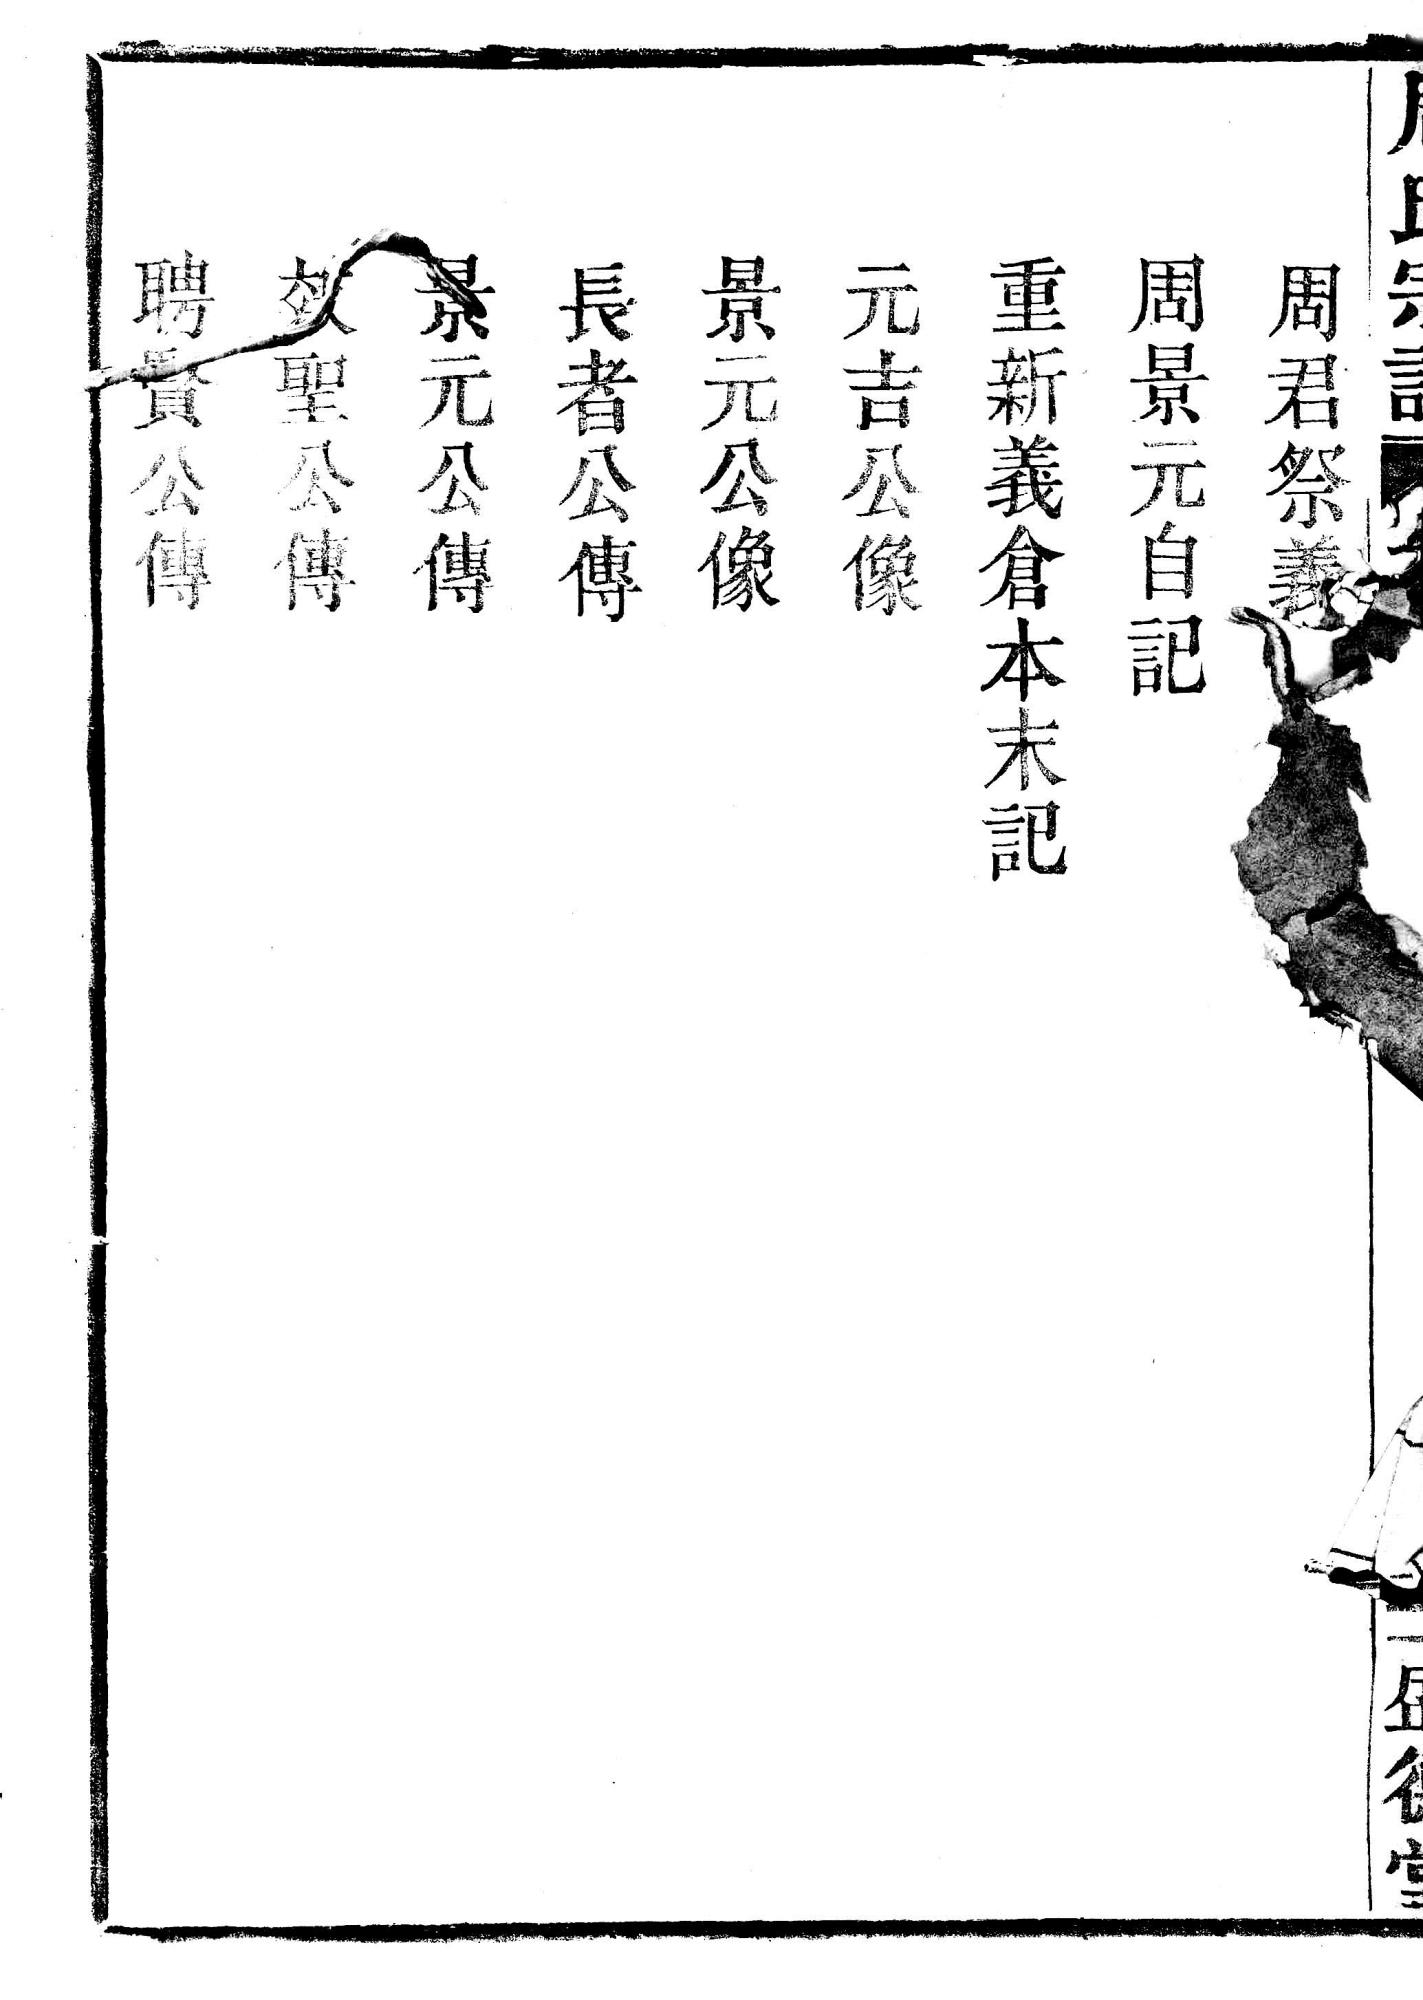 周氏宗譜
周君祭義
周景元自記
重新義倉本末記
元吉公像
景元公像
長者公傳
景元公傳
效聖公傳
聘賢公傳